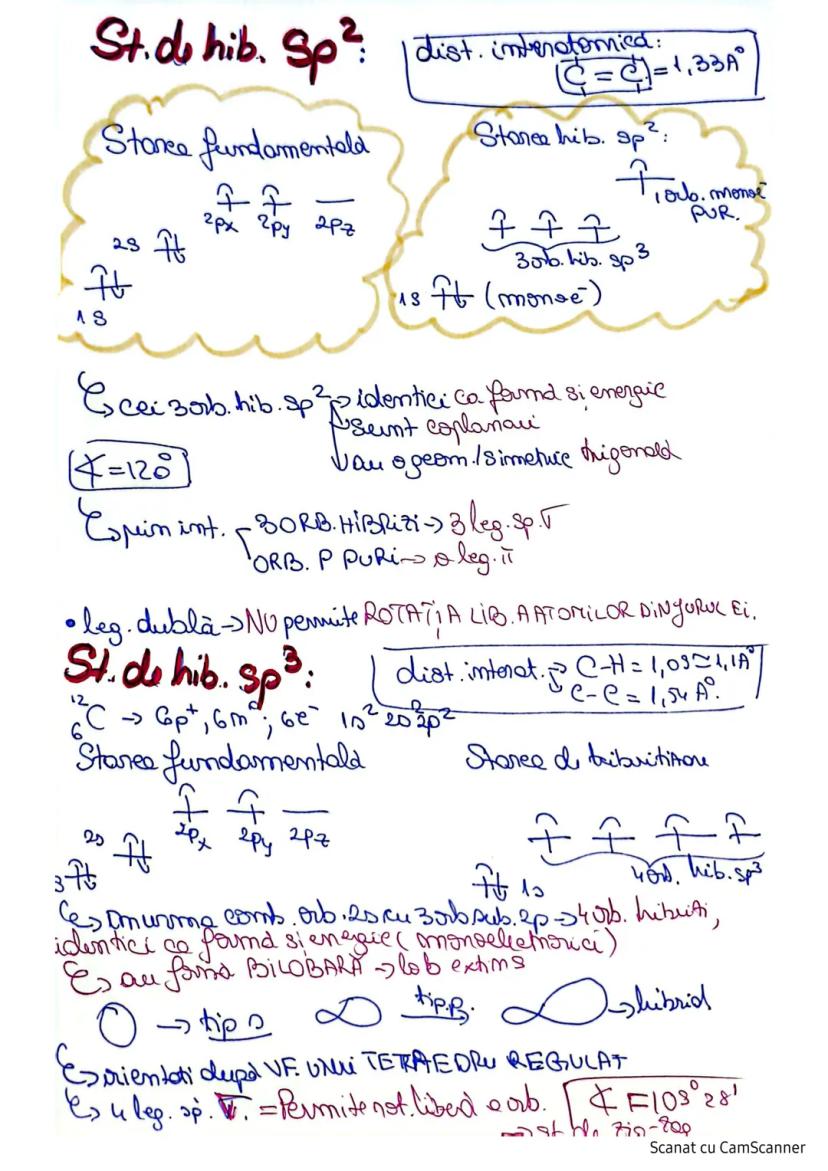 St. de hib. sp²:
dist. interatomică:
C = C = 1,33A°
Starea fundamentală
Starea hib. sp²:
1 orb. monoē
PUR.
2px 2py 2pz
2s
3 orb. hib. sp³
1s
1s (monoē)
cei 3 orb. hib. sp² → identici ca formă si energie
sunt coplanari
∢=120°
au o geom./simetrie trigonală
prin int. 3 ORB. HIBRIZI → 3 leg. sp. σ
ORB. P PURi → o leg. π
• leg. dublă → NU permite ROTAȚIA LIB. A ATOMILOR DIN JURUL Ei.
St. de hib. sp³:
dist. interat. → C-H = 1,09≃1,1A°
C-C = 1,54 A°.
¹²₆C → 6p⁺, 6n⁰, 6e⁻ 1s² 2s² 2p²
Starea fundamentală
Starea de
2px 2py 2pz
2s
4 orb. hib. sp³
1s
În urma comb. orb. 2s cu 3 orb sub. 2p → 4 orb. hibrizi,
identici ca formă si energie (monoelectronici)
au formă BILOBARĂ → lob extins
→ tip s tip p. → hibrid
orientati după VF. UNUi TETRAEDRU REGULAT
4 leg. sp. σ. = Permite rot. liberă a orb. ∢=109°28'
→ st. de zig-zag
Scanat cu CamScanner